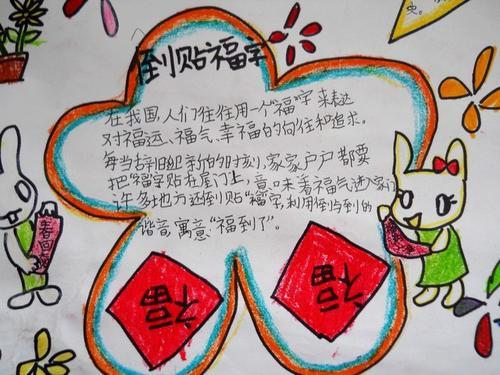 倒贴福字
在我国，人们往往用一个"福"字来表达
对福运、福气、幸福的向往和追求。
每当辞旧迎新的时刻，家家户户都要
把"福"字贴在屋门上，意味着福气进入家门
许多地方还倒贴"福"字，利用倒与到的
谐音，寓意"福到了"。
福
福
春回